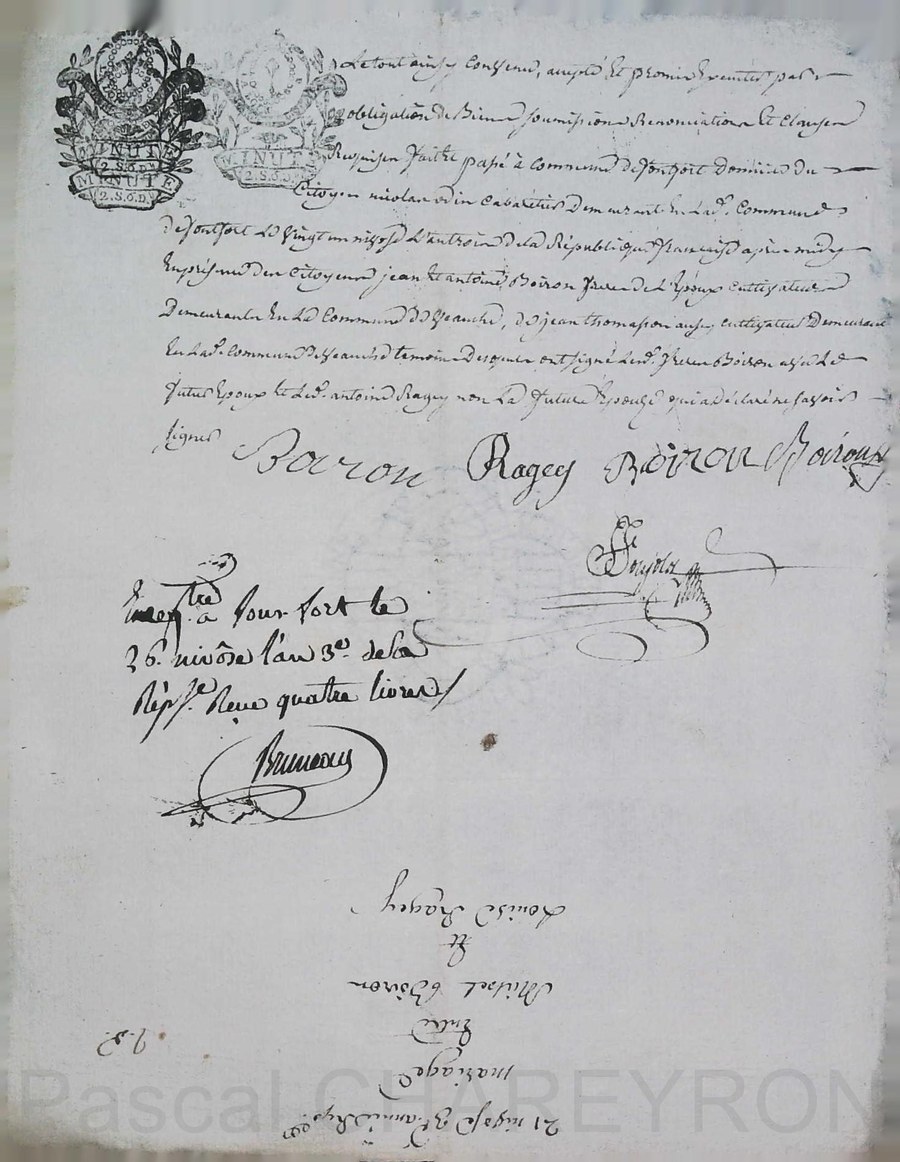 MINUTE
2.S.6.D
MINUTE
2.S.6.D
MINUTE
2.S.6.D
Le tout ainsy convenu, accepté Et promis Executés par
obligation de Biens soumissions Renonciations Et Clauses
Requises faitte passé à Commune de fontfort Domicile du
Citoyen nicolas odin Cabaretier Demeurant En Lad. Commune
de fontfort Le vingt un nivose L'an trois de la République française apres midy
En présence des Citoyens jean Et antoine Boiron freres de L'Epoux cultivateurs
Demeurants En La Commune de veauche, de jean thomasson aussy cultivateur Demeurant
En Lad. Commune temoins Desquels ont signé Lesd. freres Boiron avec Le
futur Epoux Et Led. antoine Ragey non La future Epouse qui a déclaré ne savoir
signer
Boiron Ragey Boiron Boiron
Enregtré à fontfort le
26. nivôse l'an 3e. de la
Répse. Reçu quatre livres
Bruneau
21 nivose 3e année Rep.
mariage
Entre
Michel Boiron
Et
Louise Ragey
Pascal CHAREYRON